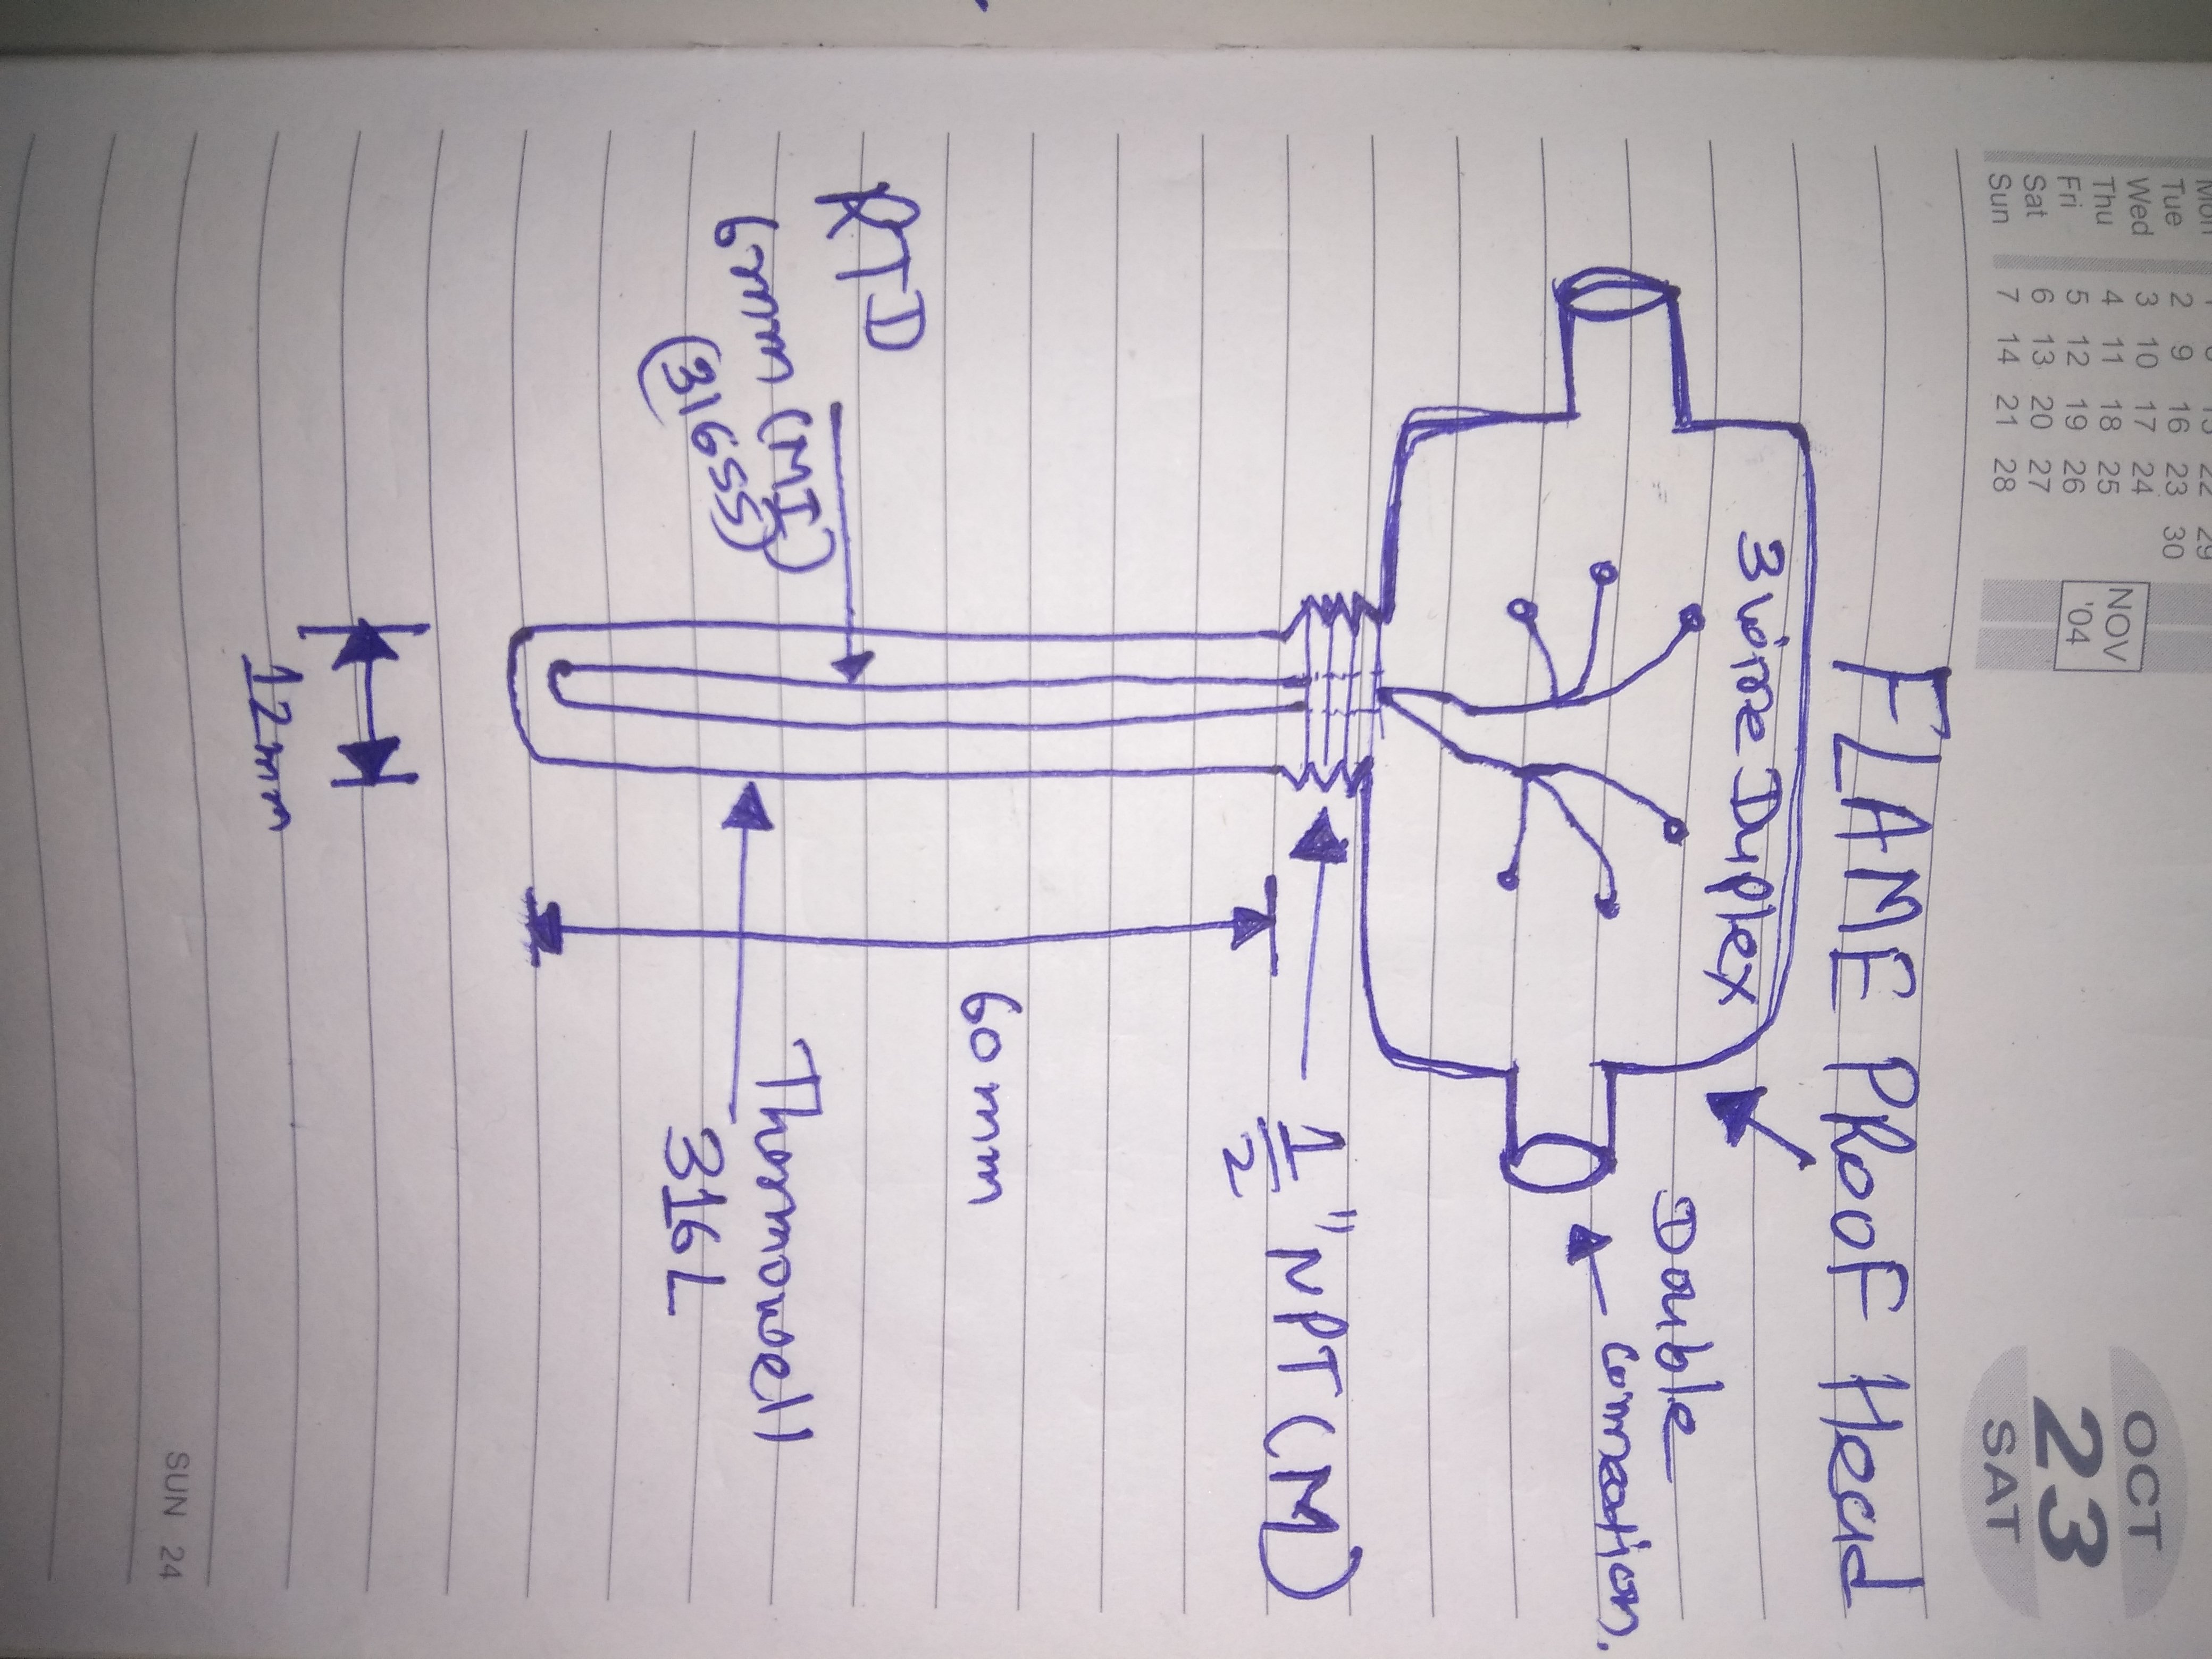 Mon 22 29
Tue 2 9 16 23 30
Wed 3 10 17 24
Thu 4 11 18 25
Fri 5 12 19 26
Sat 6 13 20 27
Sun 7 14 21 28
NOV
'04
OCT
23
SAT
FLAME PROOF Head
3 wire Duplex
Double
Connection.
1/2" NPT (M)
60 mm
RTD
6mm (MI)
(316SS)
Thermowell
316L
12mm
SUN 24